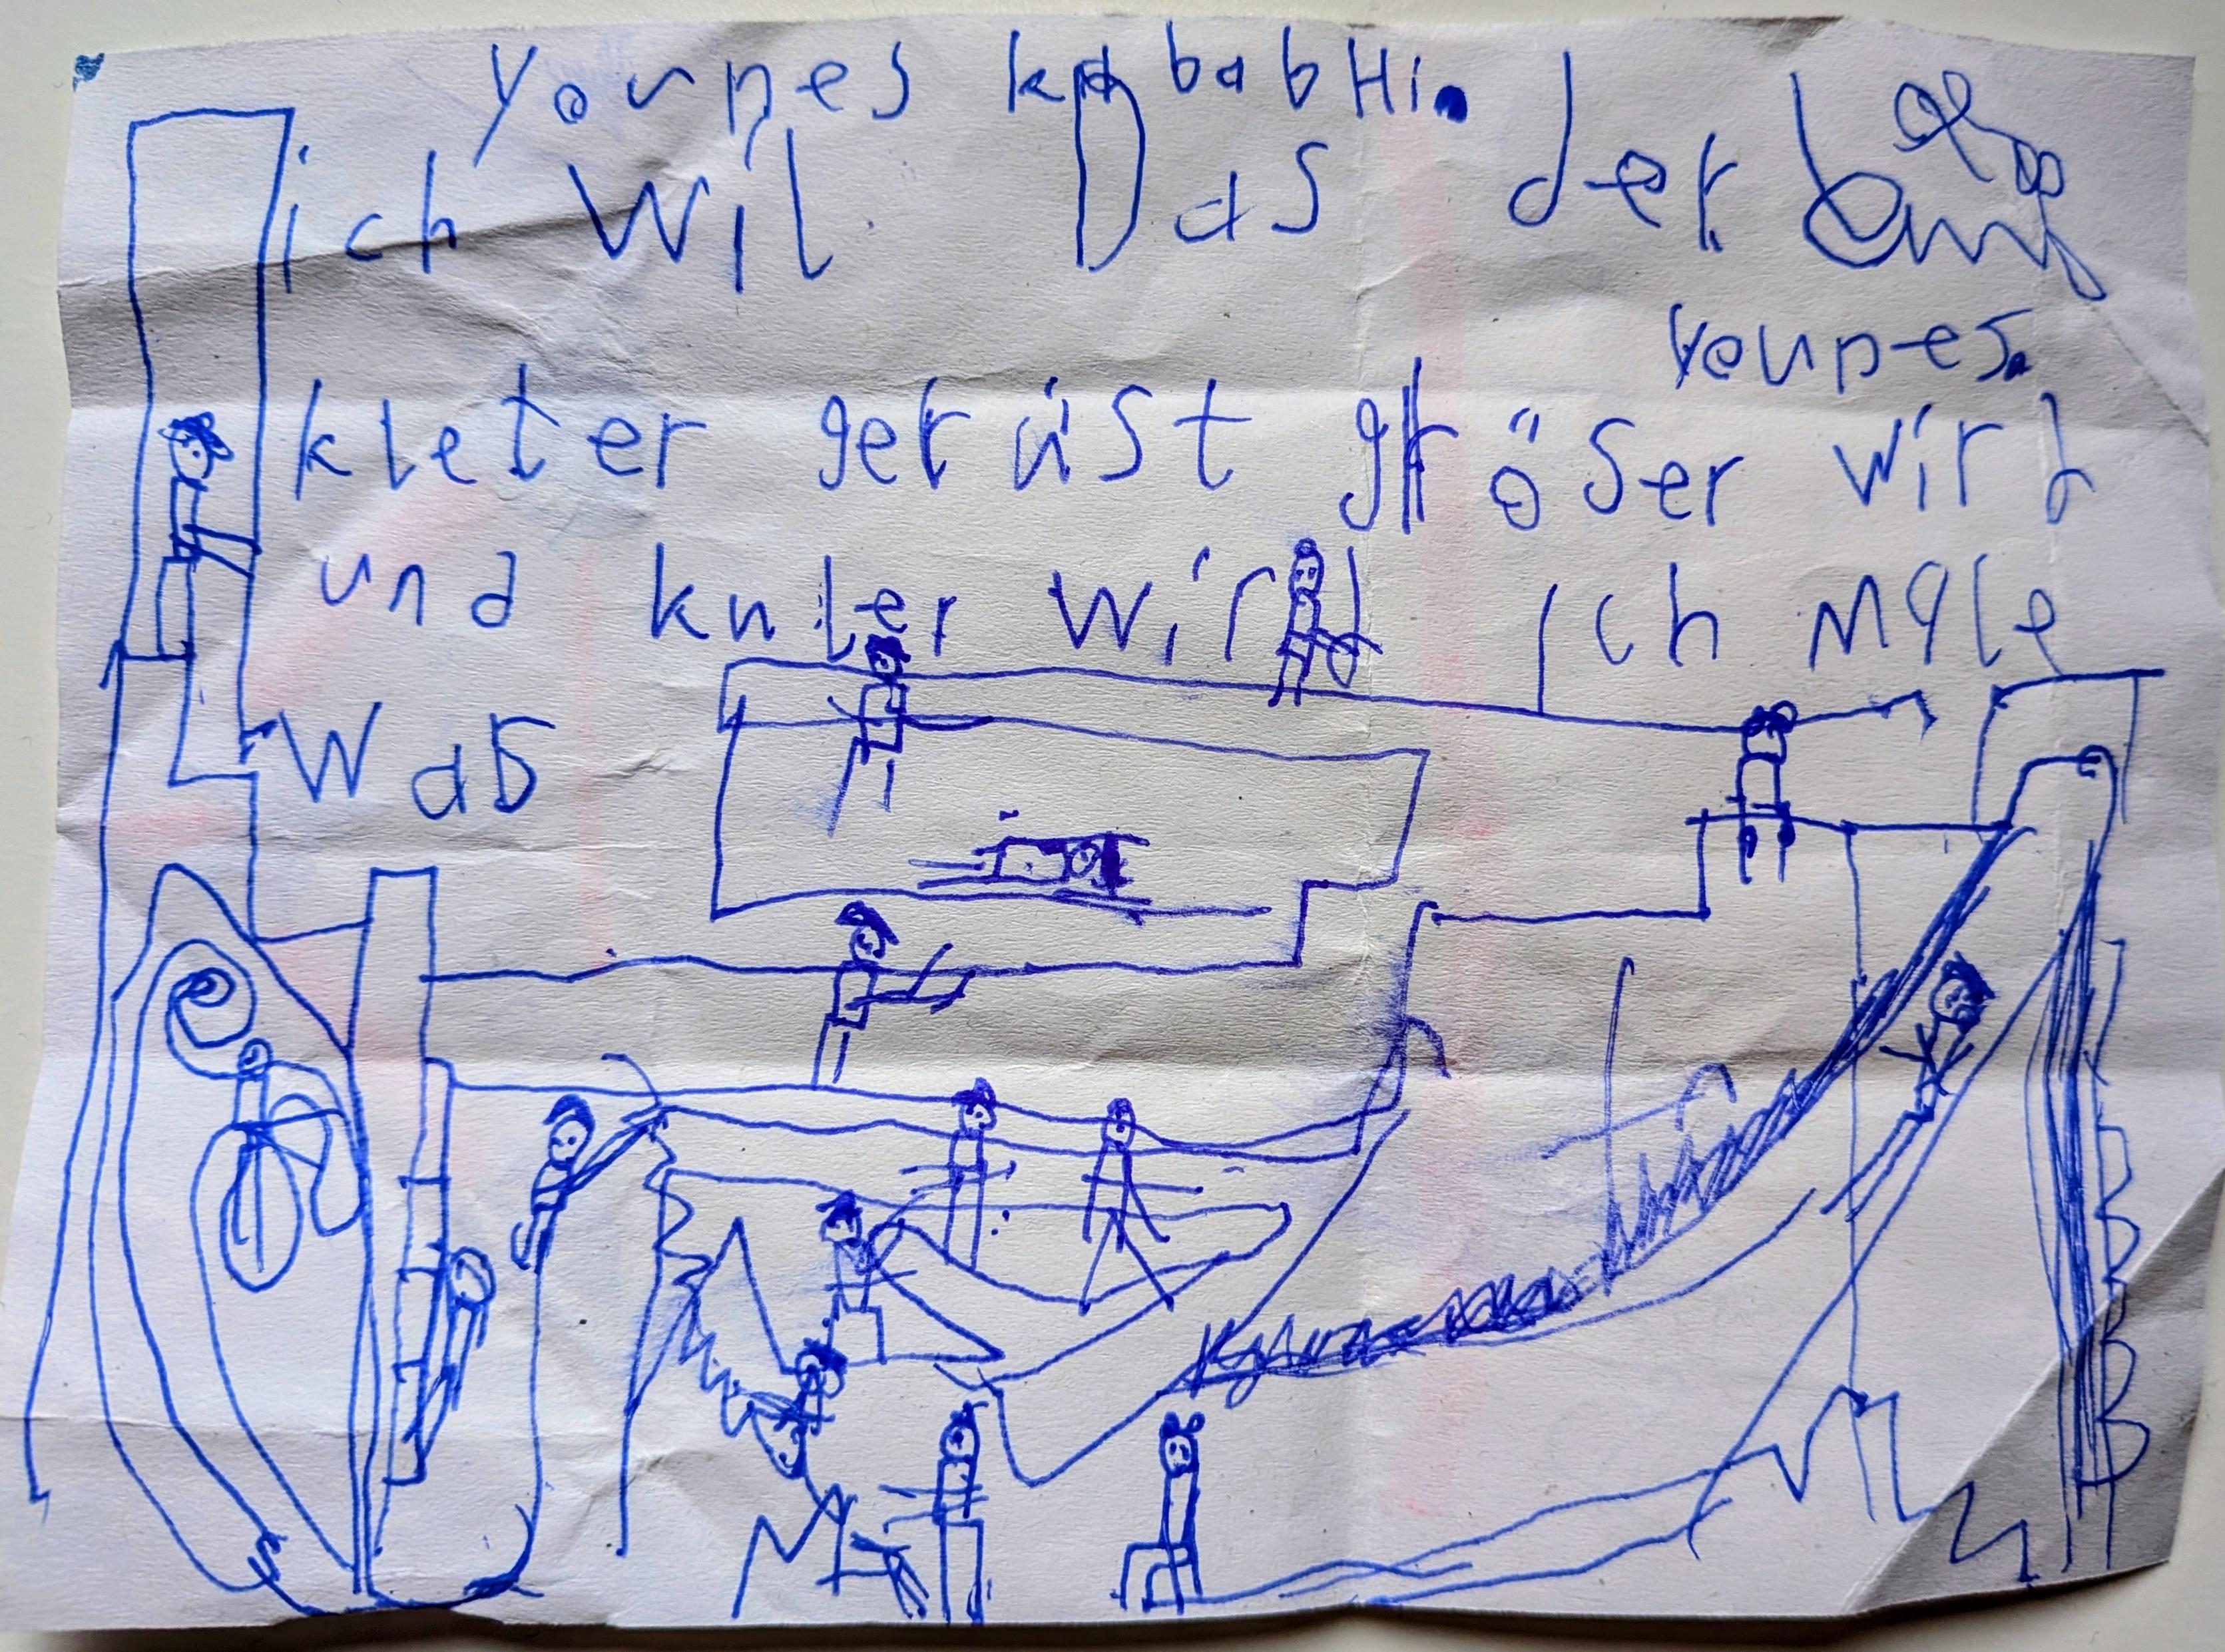 younes
ich wil Das der
younes.
kleter gerüst gröser wird
und kuler wird ich male
was